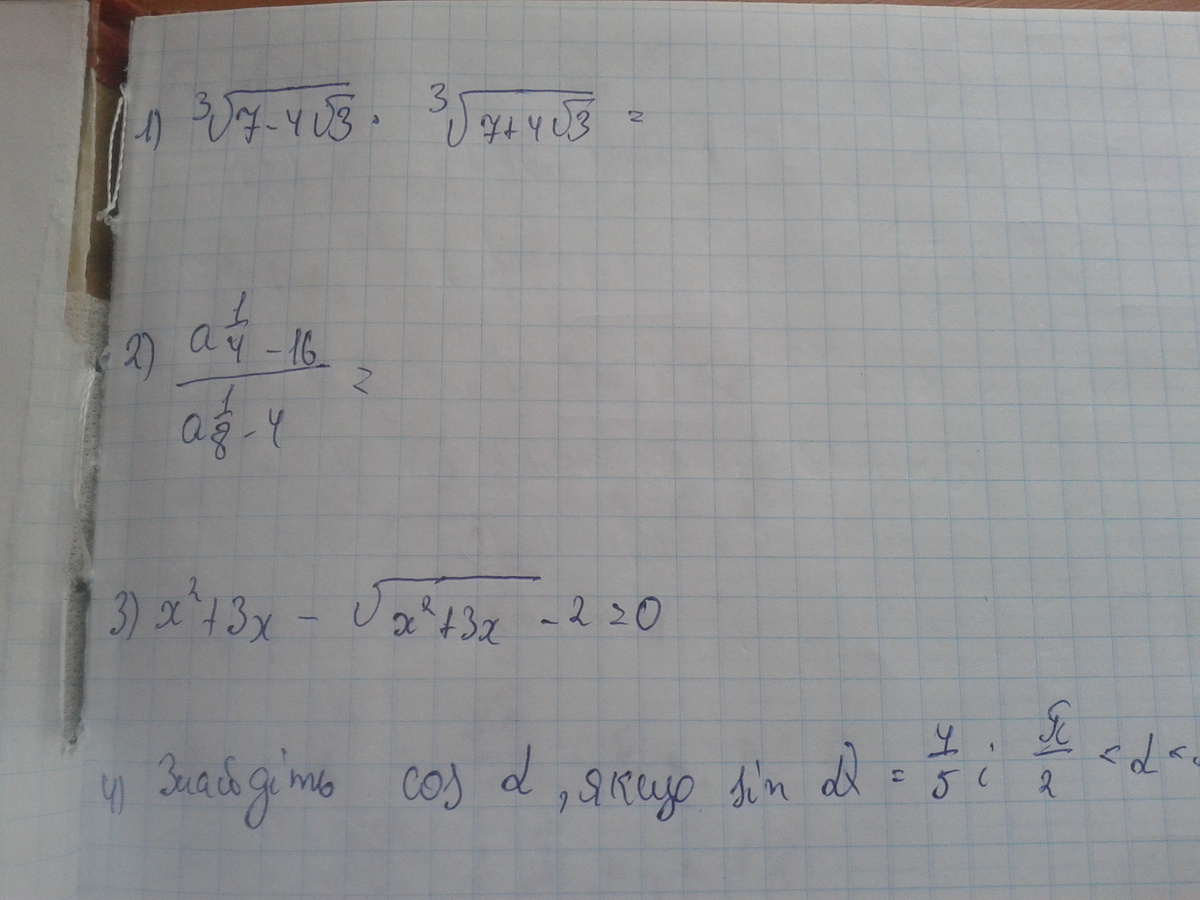 1) ∛(7-4√3) · ∛(7+4√3) =
2) (a^(1/4) - 16) / (a^(1/8) - 4) =
3) x² + 3x - √(x² + 3x) - 2 = 0
4) Знайдіть cos α, якщо sin α = 4/5 і π/2 < α <